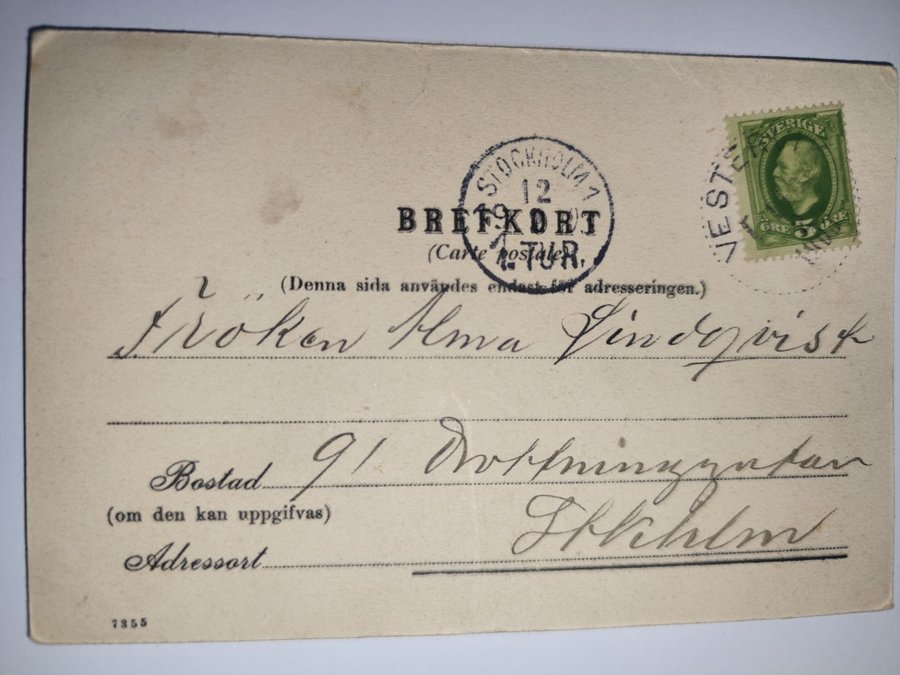 STOCKHOLM 1
12
1. TUR.
SVERIGE
5
ÖRE ÖRE
BREFKORT
(Carte postale)
(Denna sida användes endast för adresseringen.)
Fröken Alma Lindqvist
Bostad 91 Drottninggatan
(om den kan uppgifvas)
Stkhlm
Adressort
7355